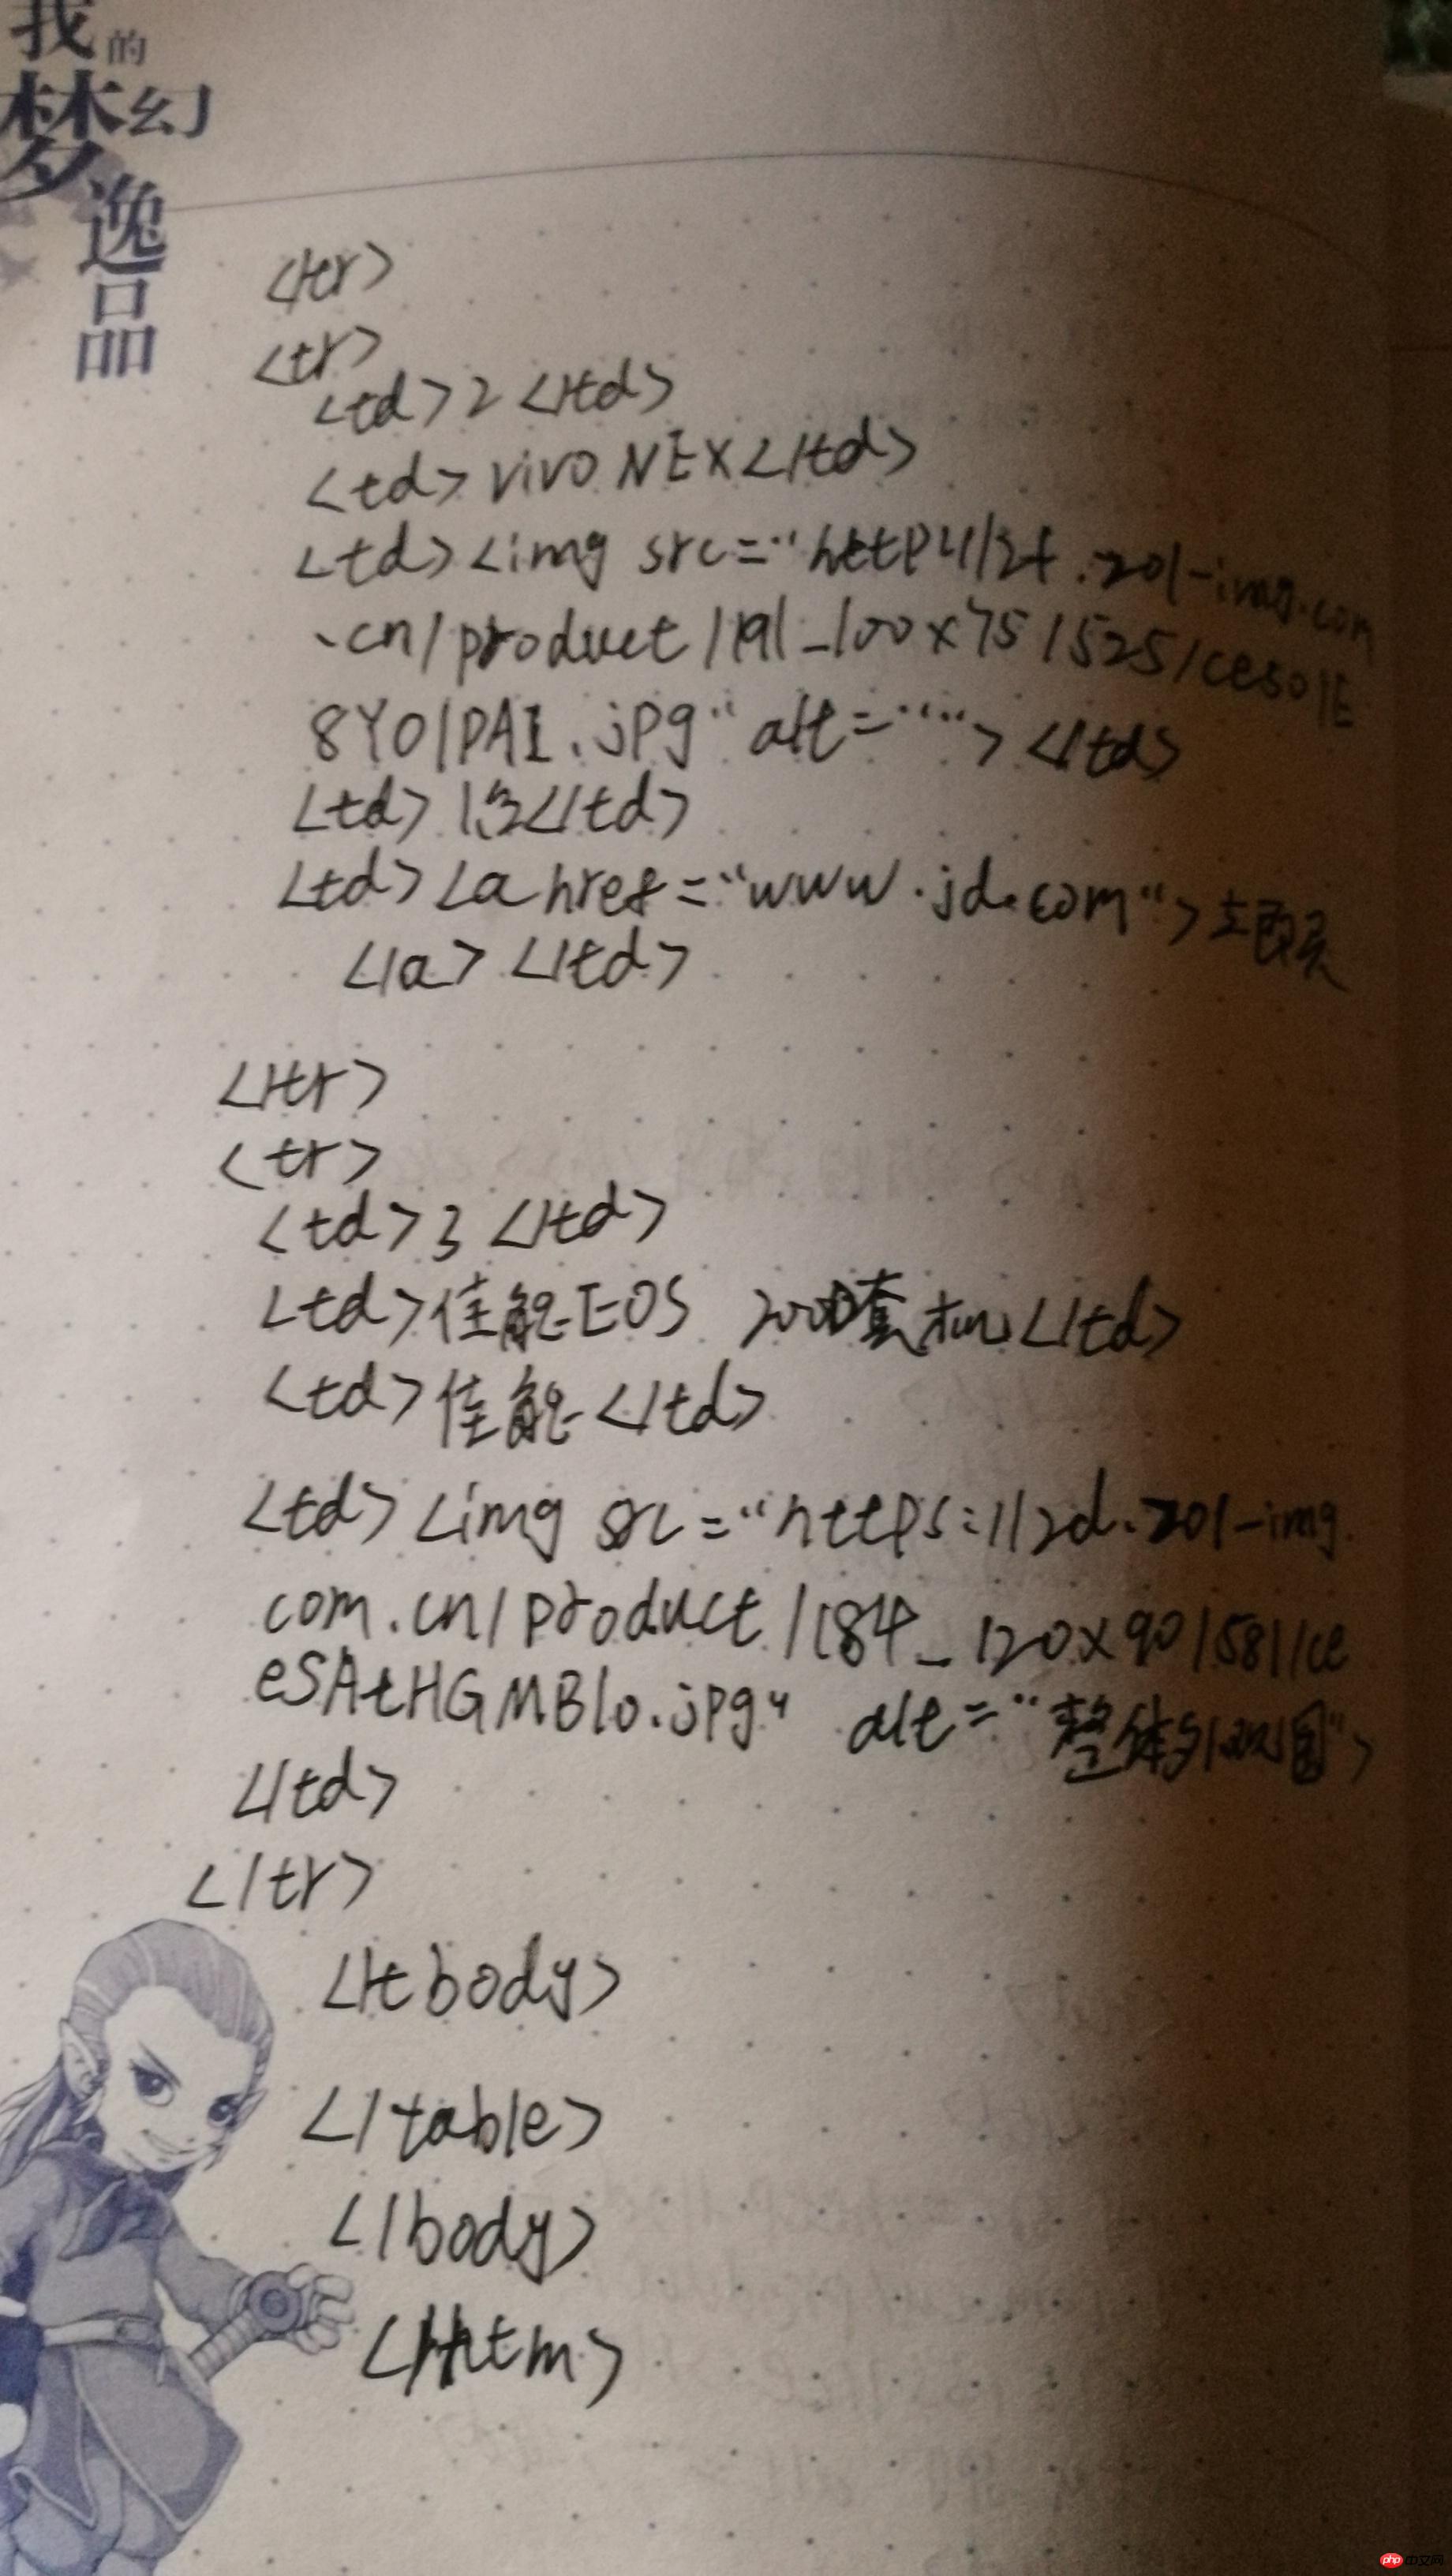 我的
梦幻
逸
品
</tr>
<tr>
<td>2</td>
<td>vivo NEX</td>
<td><img src="http .zol-img.com
.cn/product/191_100x75/525/ceso1E
8Y01PAI.jpg" alt=""></td>
<td>13</td>
<td><a href="www.jd.com">去购买
</a></td>
</tr>
<tr>
<td>3</td>
<td>佳能EOS 200D套机</td>
<td>佳能</td>
<td><img src="https://2d.zol-img.
com.cn/product/184_120x90/581/ce
eSAtHGMBlo.jpg" alt="整体外观图">
</td>
</tr>
</tbody>
</table>
</body>
</htm>
php 中文网